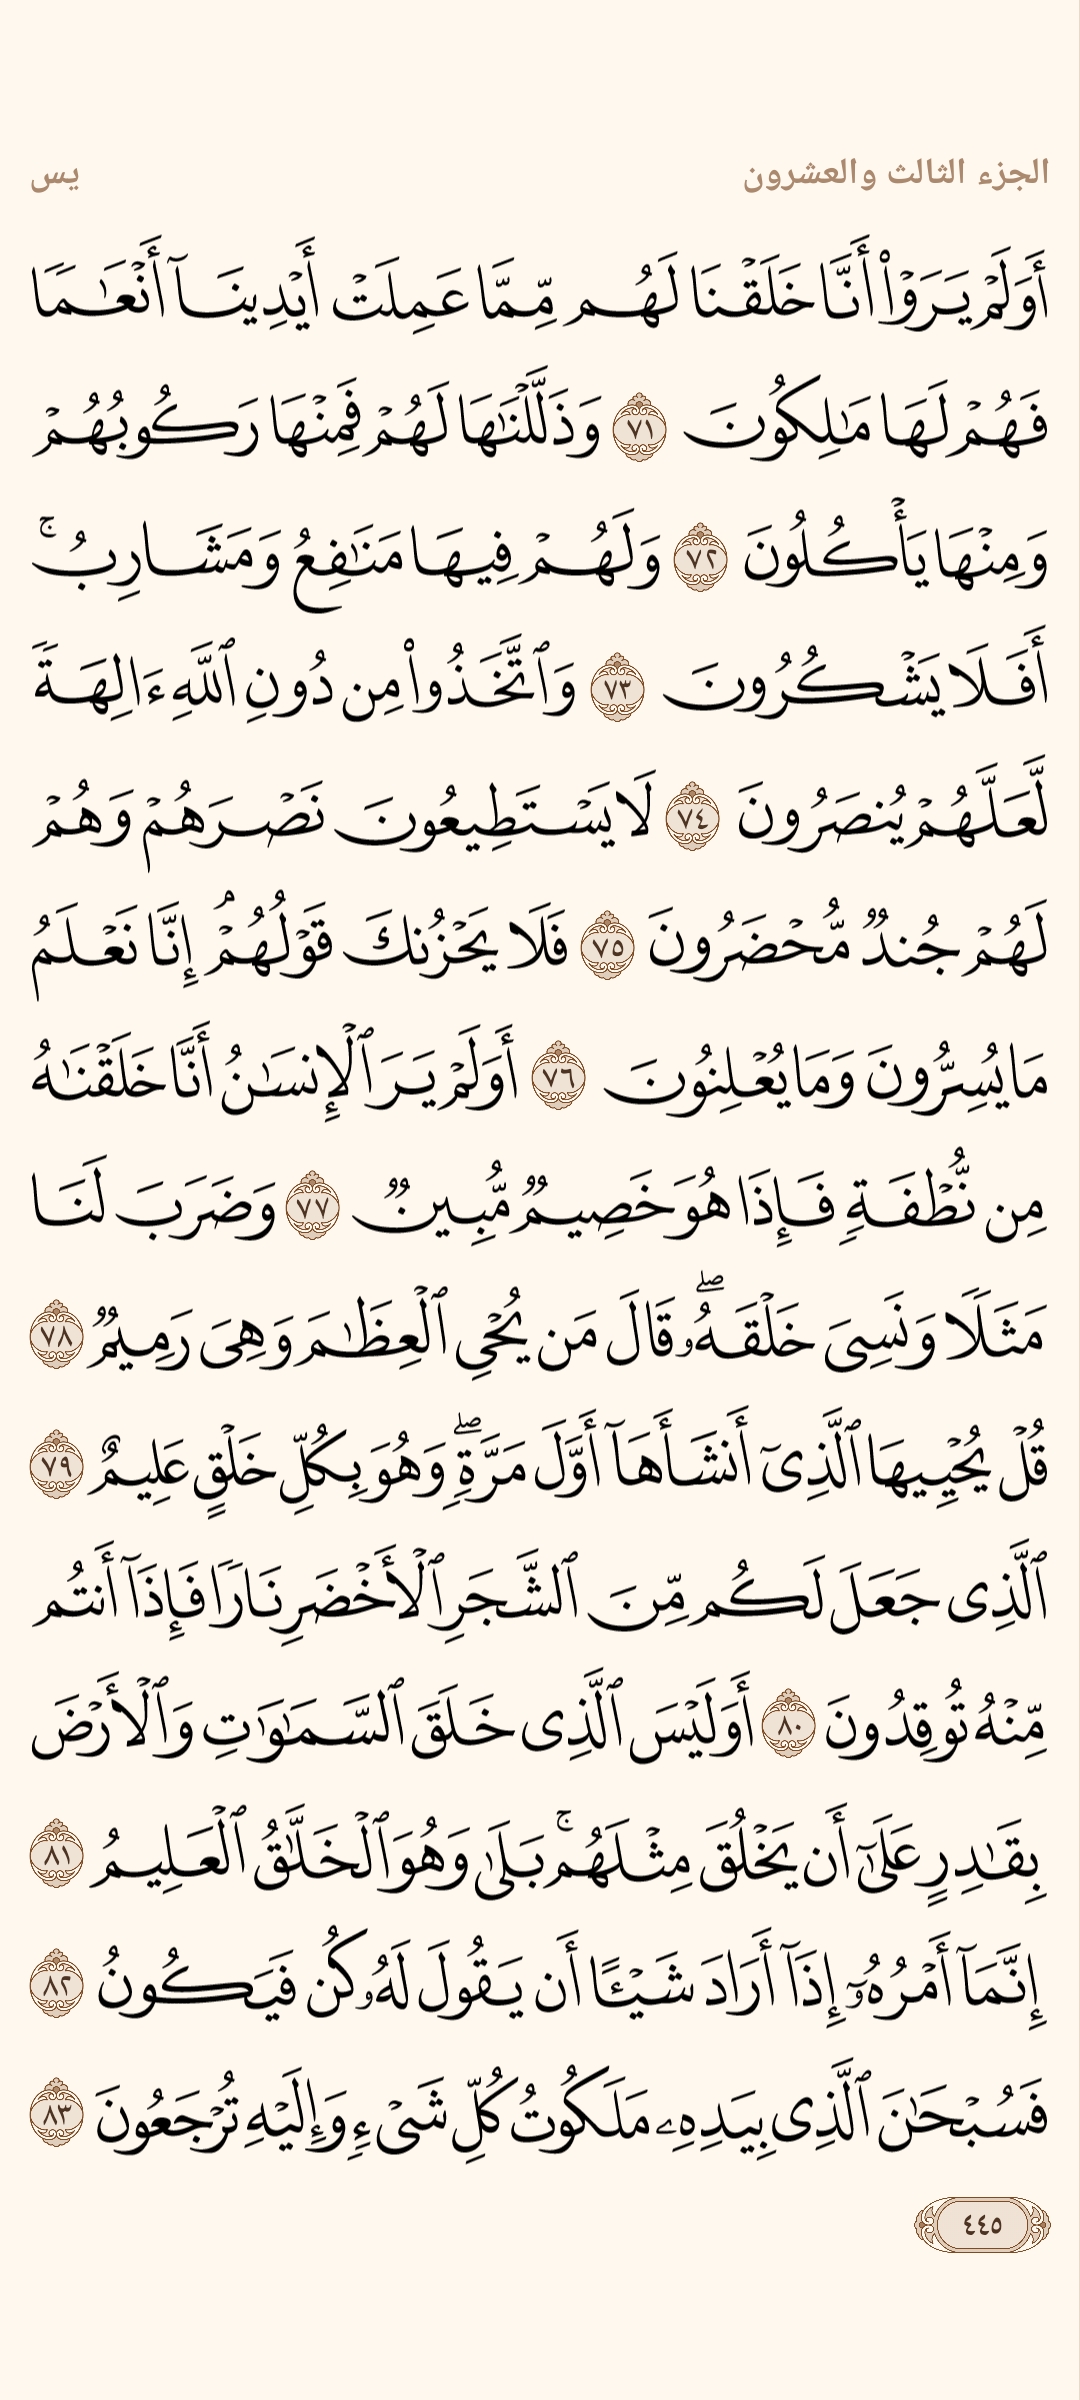 الجزء الثالث والعشرون
يس
أَوَلَمْ يَرَوْا۟ أَنَّا خَلَقْنَا لَهُم مِّمَّا عَمِلَتْ أَيْدِينَآ أَنْعَـٰمًا
فَهُمْ لَهَا مَـٰلِكُونَ ٧١ وَذَلَّلْنَـٰهَا لَهُمْ فَمِنْهَا رَكُوبُهُمْ
وَمِنْهَا يَأْكُلُونَ ٧٢ وَلَهُمْ فِيهَا مَنَـٰفِعُ وَمَشَارِبُ ۚ
أَفَلَا يَشْكُرُونَ ٧٣ وَٱتَّخَذُوا۟ مِن دُونِ ٱللَّهِ ءَالِهَةً
لَّعَلَّهُمْ يُنصَرُونَ ٧٤ لَا يَسْتَطِيعُونَ نَصْرَهُمْ وَهُمْ
لَهُمْ جُندٌ مُّحْضَرُونَ ٧٥ فَلَا يَحْزُنكَ قَوْلُهُمْ ۘ إِنَّا نَعْلَمُ
مَا يُسِرُّونَ وَمَا يُعْلِنُونَ ٧٦ أَوَلَمْ يَرَ ٱلْإِنسَـٰنُ أَنَّا خَلَقْنَـٰهُ
مِن نُّطْفَةٍ فَإِذَا هُوَ خَصِيمٌ مُّبِينٌ ٧٧ وَضَرَبَ لَنَا
مَثَلًا وَنَسِىَ خَلْقَهُۥ ۖ قَالَ مَن يُحْىِ ٱلْعِظَـٰمَ وَهِىَ رَمِيمٌ ٧٨
قُلْ يُحْيِيهَا ٱلَّذِىٓ أَنشَأَهَآ أَوَّلَ مَرَّةٍ ۖ وَهُوَ بِكُلِّ خَلْقٍ عَلِيمٌ ٧٩
ٱلَّذِى جَعَلَ لَكُم مِّنَ ٱلشَّجَرِ ٱلْأَخْضَرِ نَارًا فَإِذَآ أَنتُم
مِّنْهُ تُوقِدُونَ ٨٠ أَوَلَيْسَ ٱلَّذِى خَلَقَ ٱلسَّمَـٰوَٰتِ وَٱلْأَرْضَ
بِقَـٰدِرٍ عَلَىٰٓ أَن يَخْلُقَ مِثْلَهُم ۚ بَلَىٰ وَهُوَ ٱلْخَلَّـٰقُ ٱلْعَلِيمُ ٨١
إِنَّمَآ أَمْرُهُۥٓ إِذَآ أَرَادَ شَيْـًٔا أَن يَقُولَ لَهُۥ كُن فَيَكُونُ ٨٢
فَسُبْحَـٰنَ ٱلَّذِى بِيَدِهِۦ مَلَكُوتُ كُلِّ شَىْءٍ وَإِلَيْهِ تُرْجَعُونَ ٨٣
٤٤٥